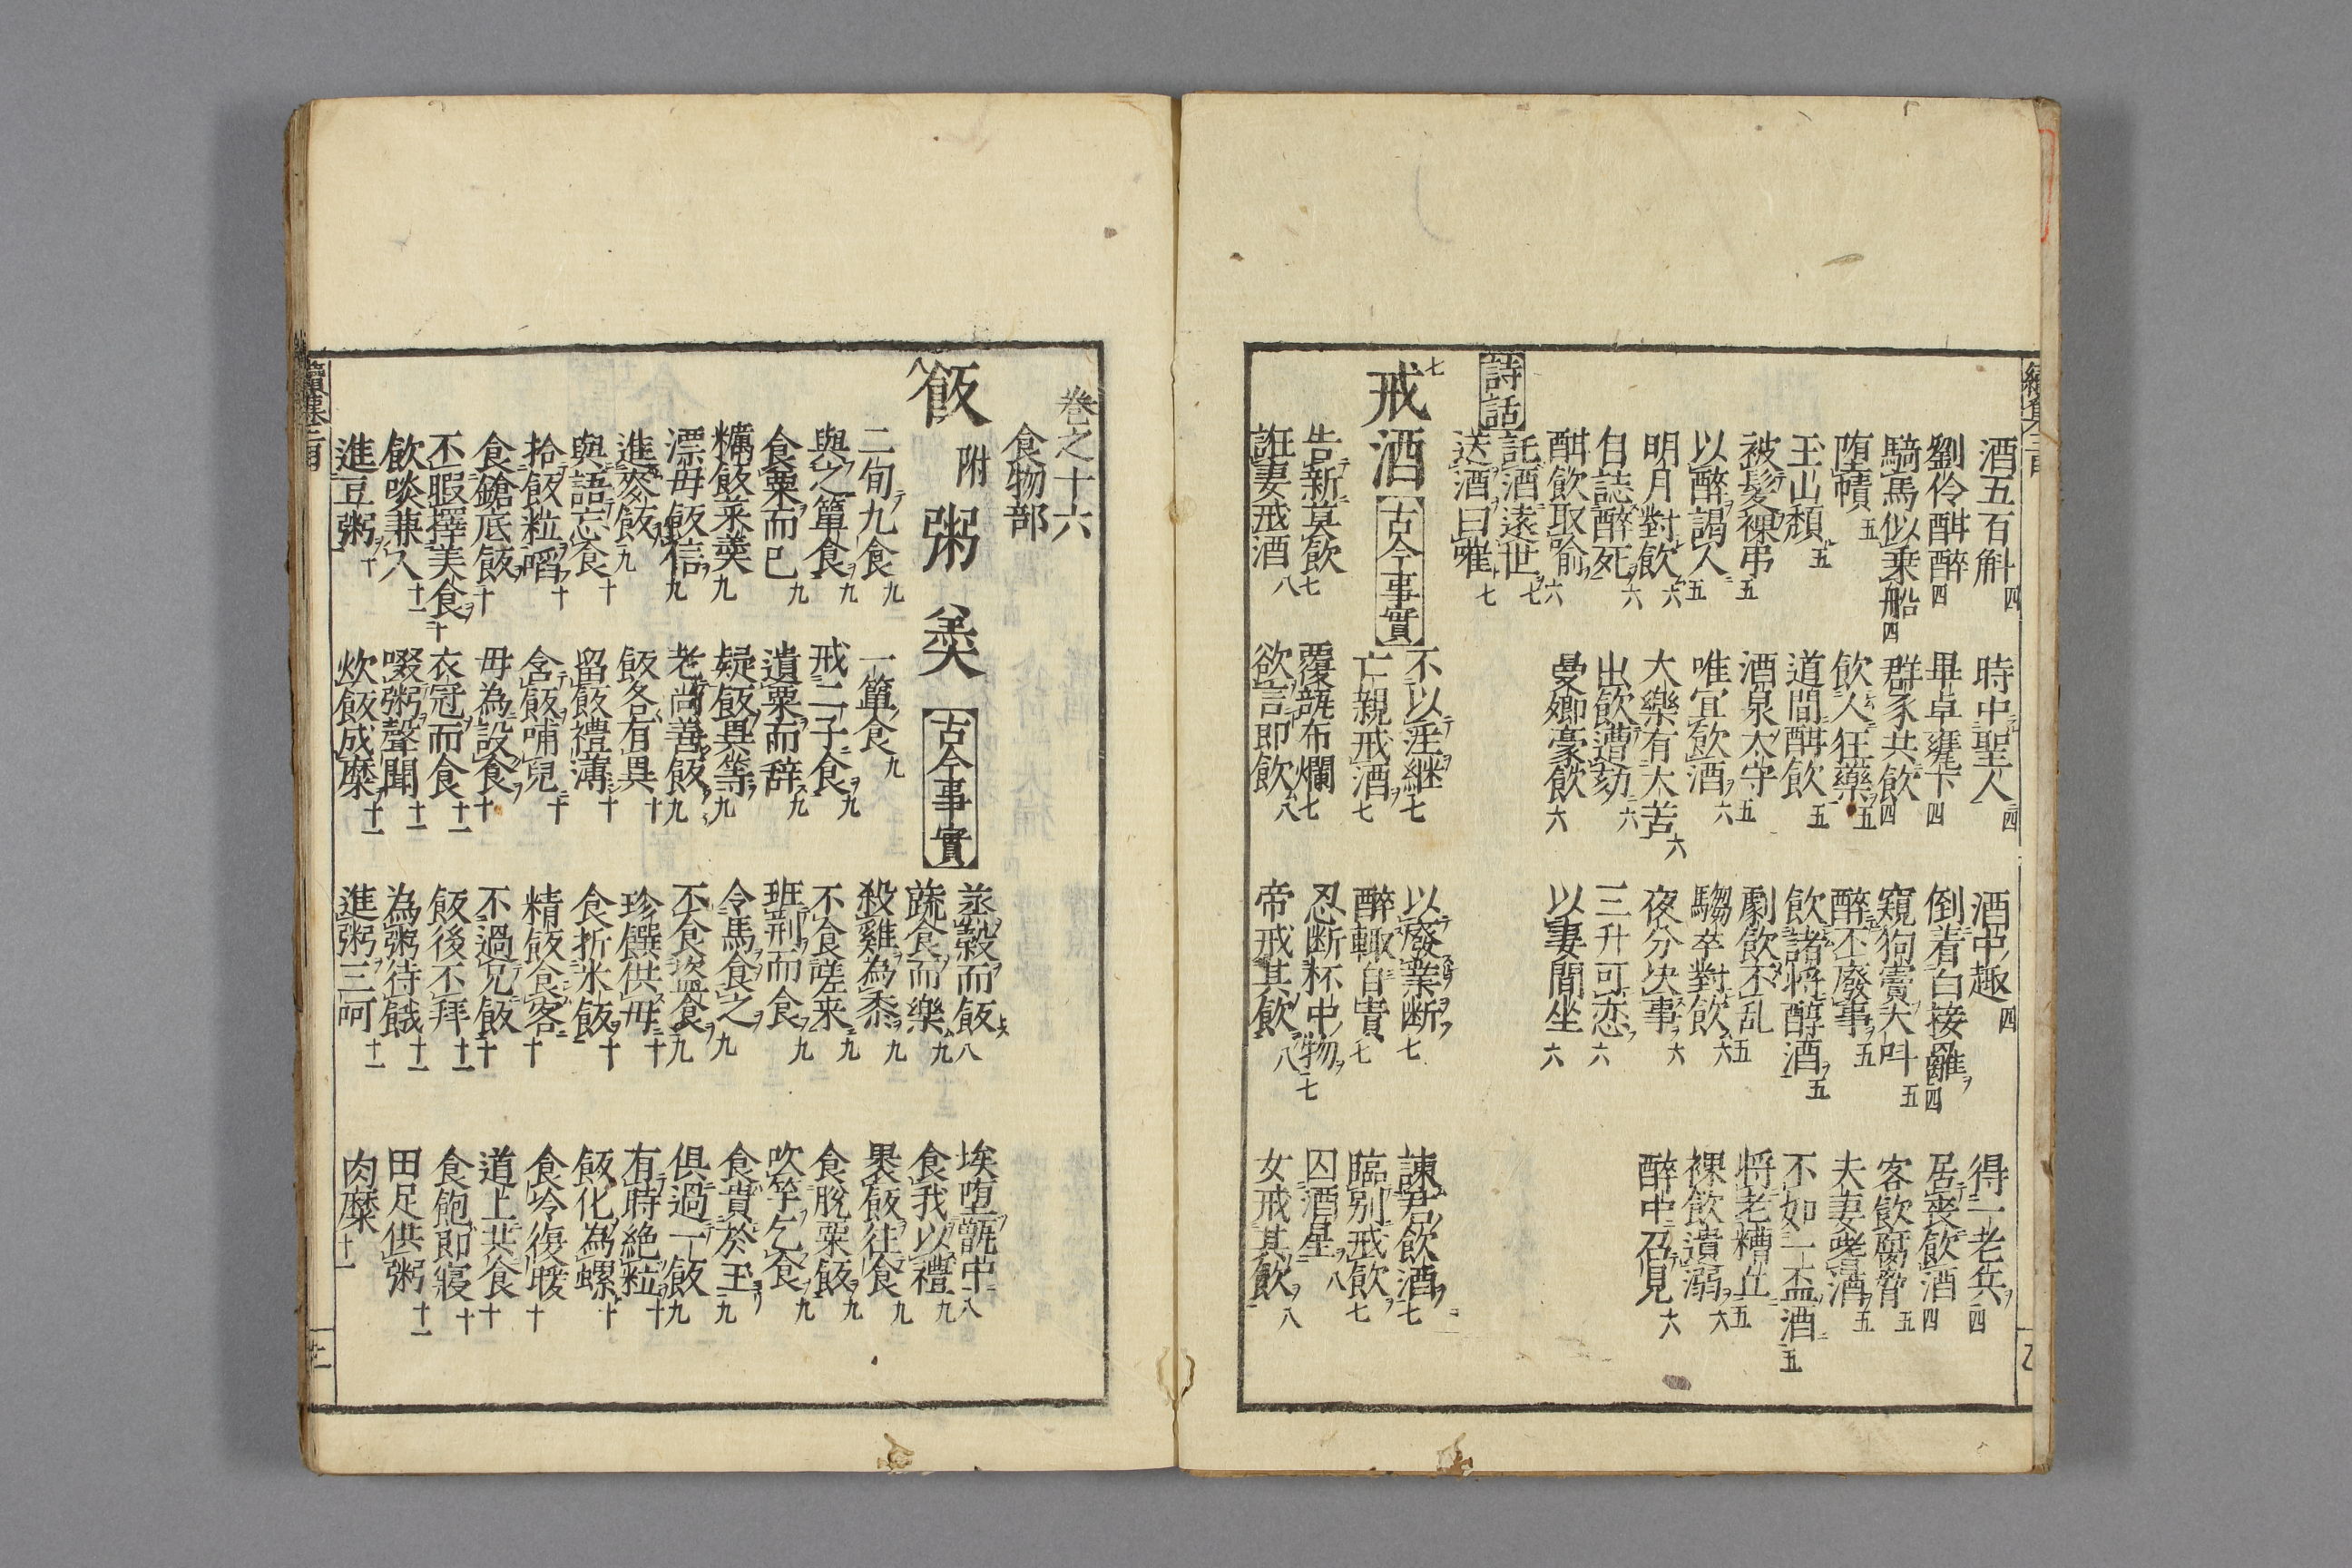 酒五百斛四 時中聖人四 酒中趣四 得一老兵四
劉伶酣醉四 畢卓甕下四 倒着白接䍦四 居喪飲酒四
騎馬似乗船四 群豕共飲四 窺狗竇大叫五 客飲腐脅五
堕幘五 飲人狂藥五 醉不廢事五 夫妻嗜酒五
玉山頽五 道間酣飲五 飲諸将醇酒五 不如一盃酒五
被髪裸弔五 酒泉太守五 劇飲不乱五 将老糟丘五
以醉謁人五 唯宜飲酒六 騶卒對飲六 裸飲潰溺六
明月對飲六 大樂有大苦六 夜分决事六 醉中召見六
自誌醉死六 出飲遭劾六 三升可恋六
酣飲取喻六 曼卿豪飲六 以妻間坐六
託酒遠世七
詩話
送酒曰嗺七
戒酒 古今事實 不以淫継七 以廢業断七 諫君飲酒七
七
亡親戒酒七 醉輙自責七 臨别戒飲七
告新莫飲七 覆瓿布爛七 忍断杯中物七 囚酒星八
誑妻戒酒八 欲言即飲八 帝戒其飲八 女戒其飲八
卷之十六
食物部
飯 附粥 羹 古今事實 蒸穀而飯八 埃堕甑中八
八
蔬食而樂九 食我以禮九
二旬九食九 一簞食九 殺雞為黍九 褁飯往食九
與之簞食九 戒二子食九 不食嗟来九 食脫粟飯九
食粟而已九 遺粟而辞九 班荊而食九 吹竽乞食九
糲飯釆羹九 疑飯異等九 令馬食之九 食貴於玉九
漂毋飯信九 老尚善飯九 不食盜食九 俱過一飯九
進麥飯九 飯各有異十 珍饌供毋十 有時絶粒十
與語忘食十 留飯禮薄十 食折米飯十 飯化為螺十
拾飯粒㗖十 含飯哺兒十 精飯食客十 食冷復暖十
食鎗底飯十 毋為設食十 不過兄飯十 道上共食十
不暇擇美食十 衣冠而食十一 飯後不拜十一 食飽即寢十
飲啖兼人十一 啜粥聲聞十一 為粥待餓十一 田足供粥十一
進豆粥十 炊飯成糜十一 進粥三呵十一 肉糜十一